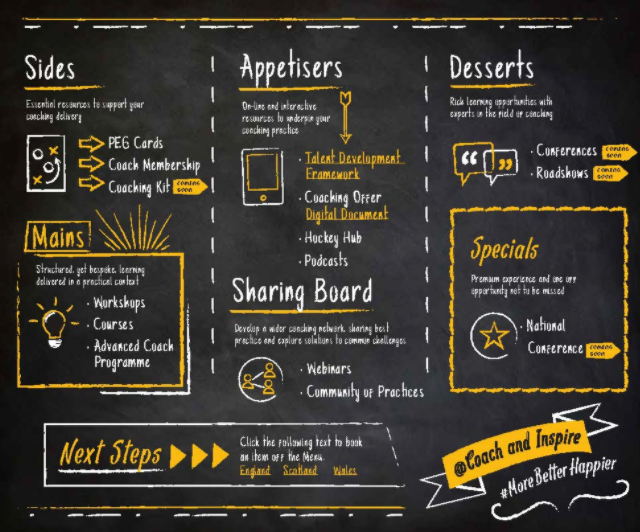 Sides
Essential resources to support your
coaching delivery
PEG Cards
Coach Membership
Coaching Kit
COMING
SOON
Mains
Structured, yet bespoke, learning
delivered in a practical context
· Workshops
· Courses
· Advanced Coach
Programme
Appetisers
On-line and interactive
resources to underpin your
coaching practice
· Talent Development
Framework
· Coaching Offer
Digital Document
· Hockey Hub
· Podcasts
Sharing Board
Develop a wider coaching network, sharing best
practice and explore solutions to common challenges
· Webinars
· Community of Practices
Desserts
Rich learning opportunities with
experts in the field of coaching
· Conferences
COMING
SOON
· Roadshows
COMING
SOON
Specials
Premium experience and one off
opportunity not to be missed
· National
Conference
COMING
SOON
Next Steps
Click the following text to book
an item off the Menu.
England Scotland Wales
@Coach and Inspire
#More Better Happier